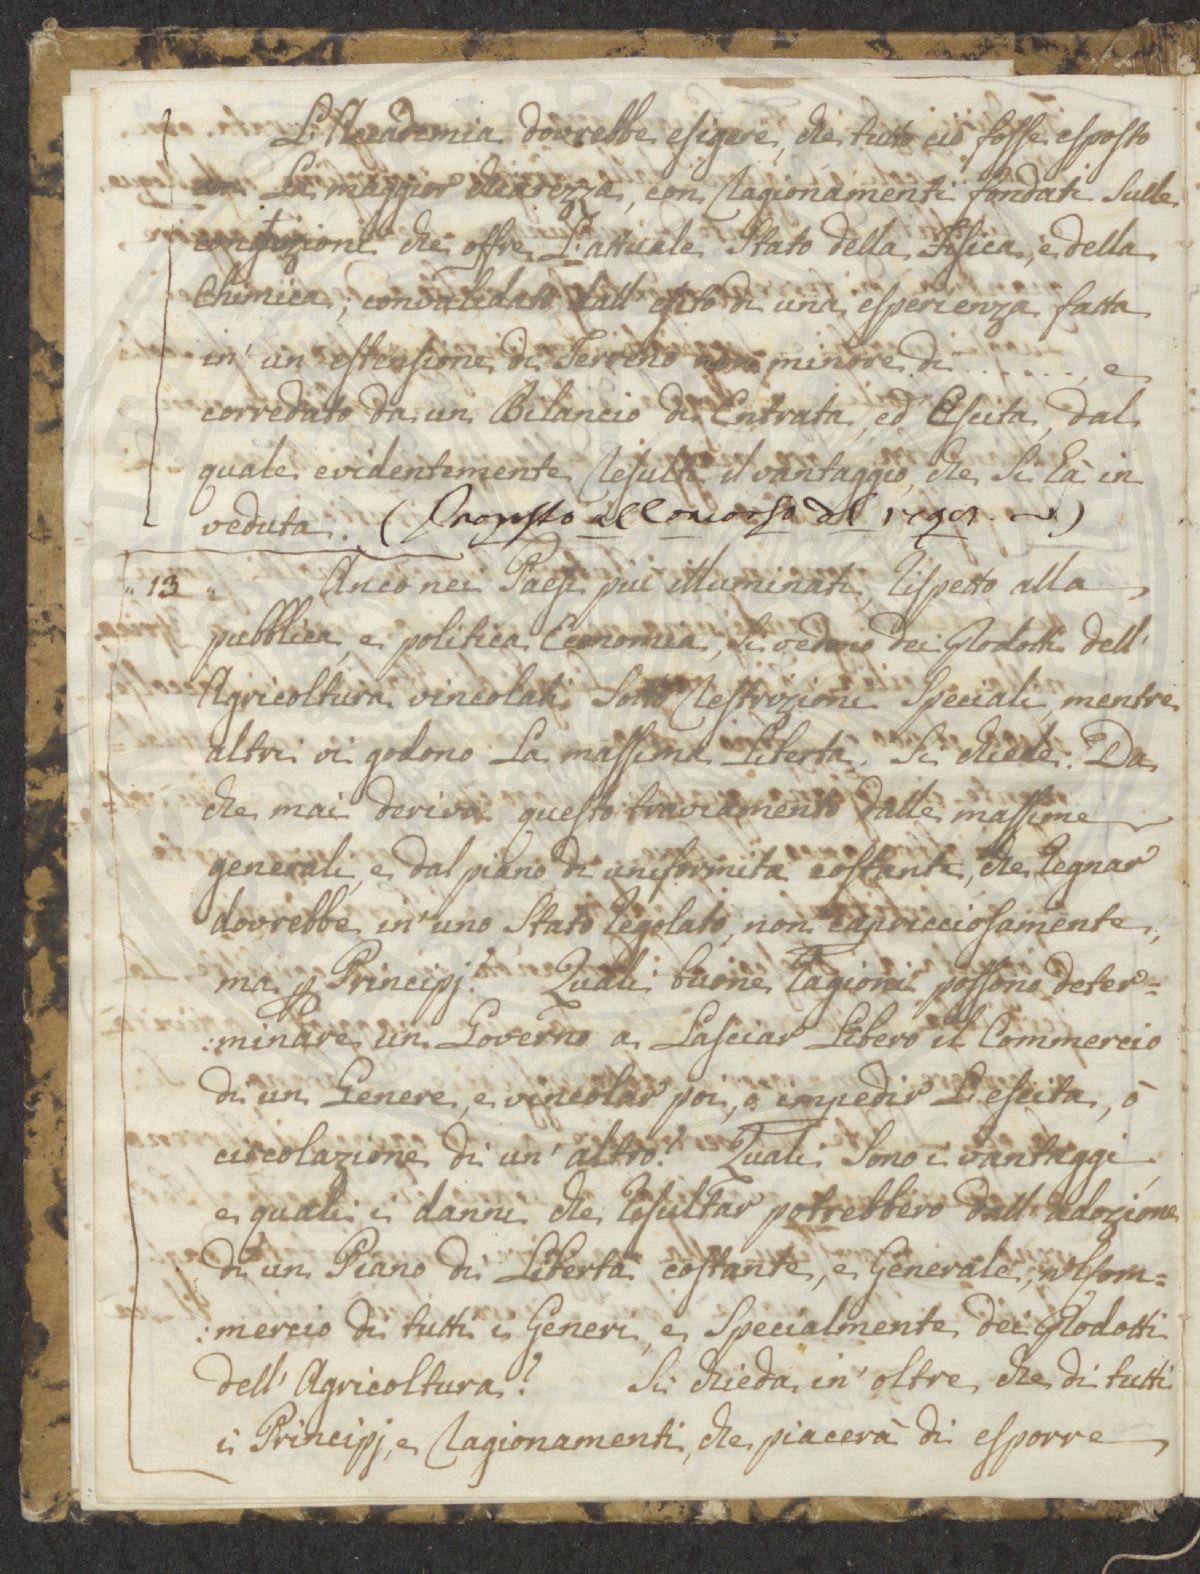 L'Accademia dovrebbe esigere, che tutto ciò fosse esposto
con La maggior chiarezza, con ragionamenti fondati sulle
cognizioni che offre L'attuale Stato della Fisica, e della
Chimica; convalidato dall'esito di una esperienza fatta
in' un estensione di Terreno non minore di . . . . . . , e
corredato da un Bilancio di Entrata, ed Escita, dal
quale evidentemente resulti il vantaggio, che si hà in
veduta. (Proposto al Concorso del
" 13 " Anco nei Paesi più illuminati, rispetto alla
pubblica, e politica Economia, si vedono dei Prodotti dell'
Agricoltura vincolati sotto restrizioni speciali, mentre
altri vi godono La massima Libertà. Si chiede: Da
che mai deriva questo traviamento dalle massime
generali, e dal piano di uniformità costante, che regnar
dovrebbe in' uno Stato regolato, non capricciosamente,
ma p Principj? Quali buone ragioni possono deter=
:minare un Governo a Lasciar Libero il Commercio
di un Genere, e vincolar poi, o impedir L'escita, ò
circolazione di un' altro? Quali sono i vantaggi,
e quali i danni che resultar potrebbero dall'adozione
di un Piano di Libertà costante, e Generale, nel Com=
:mercio di tutti i Generi, e specialmente dei Prodotti
dell' Agricoltura? Si chieda in' oltre, che di tutti
i Principj, e ragionamenti, che piacerà di esporre